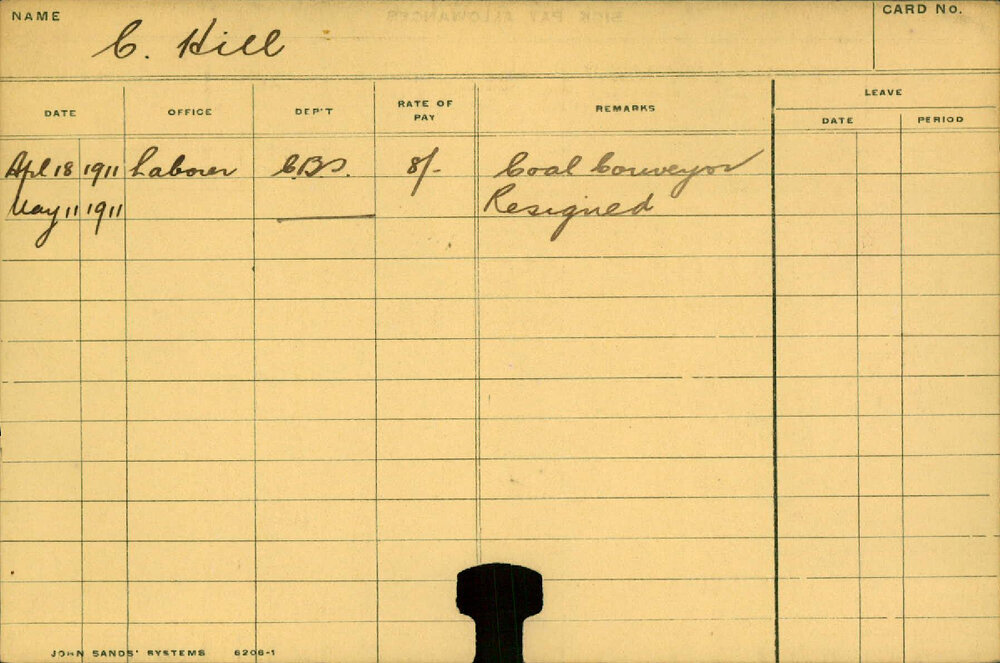 NAME
C. Hill
CARD No.
DATE OFFICE DEP'T RATE OF PAY REMARKS LEAVE
DATE PERIOD
Apl 18 1911 Laborer 8/- Coal Conveyor
May 11 1911 Resigned
JOHN SANDS' SYSTEMS 6206-1